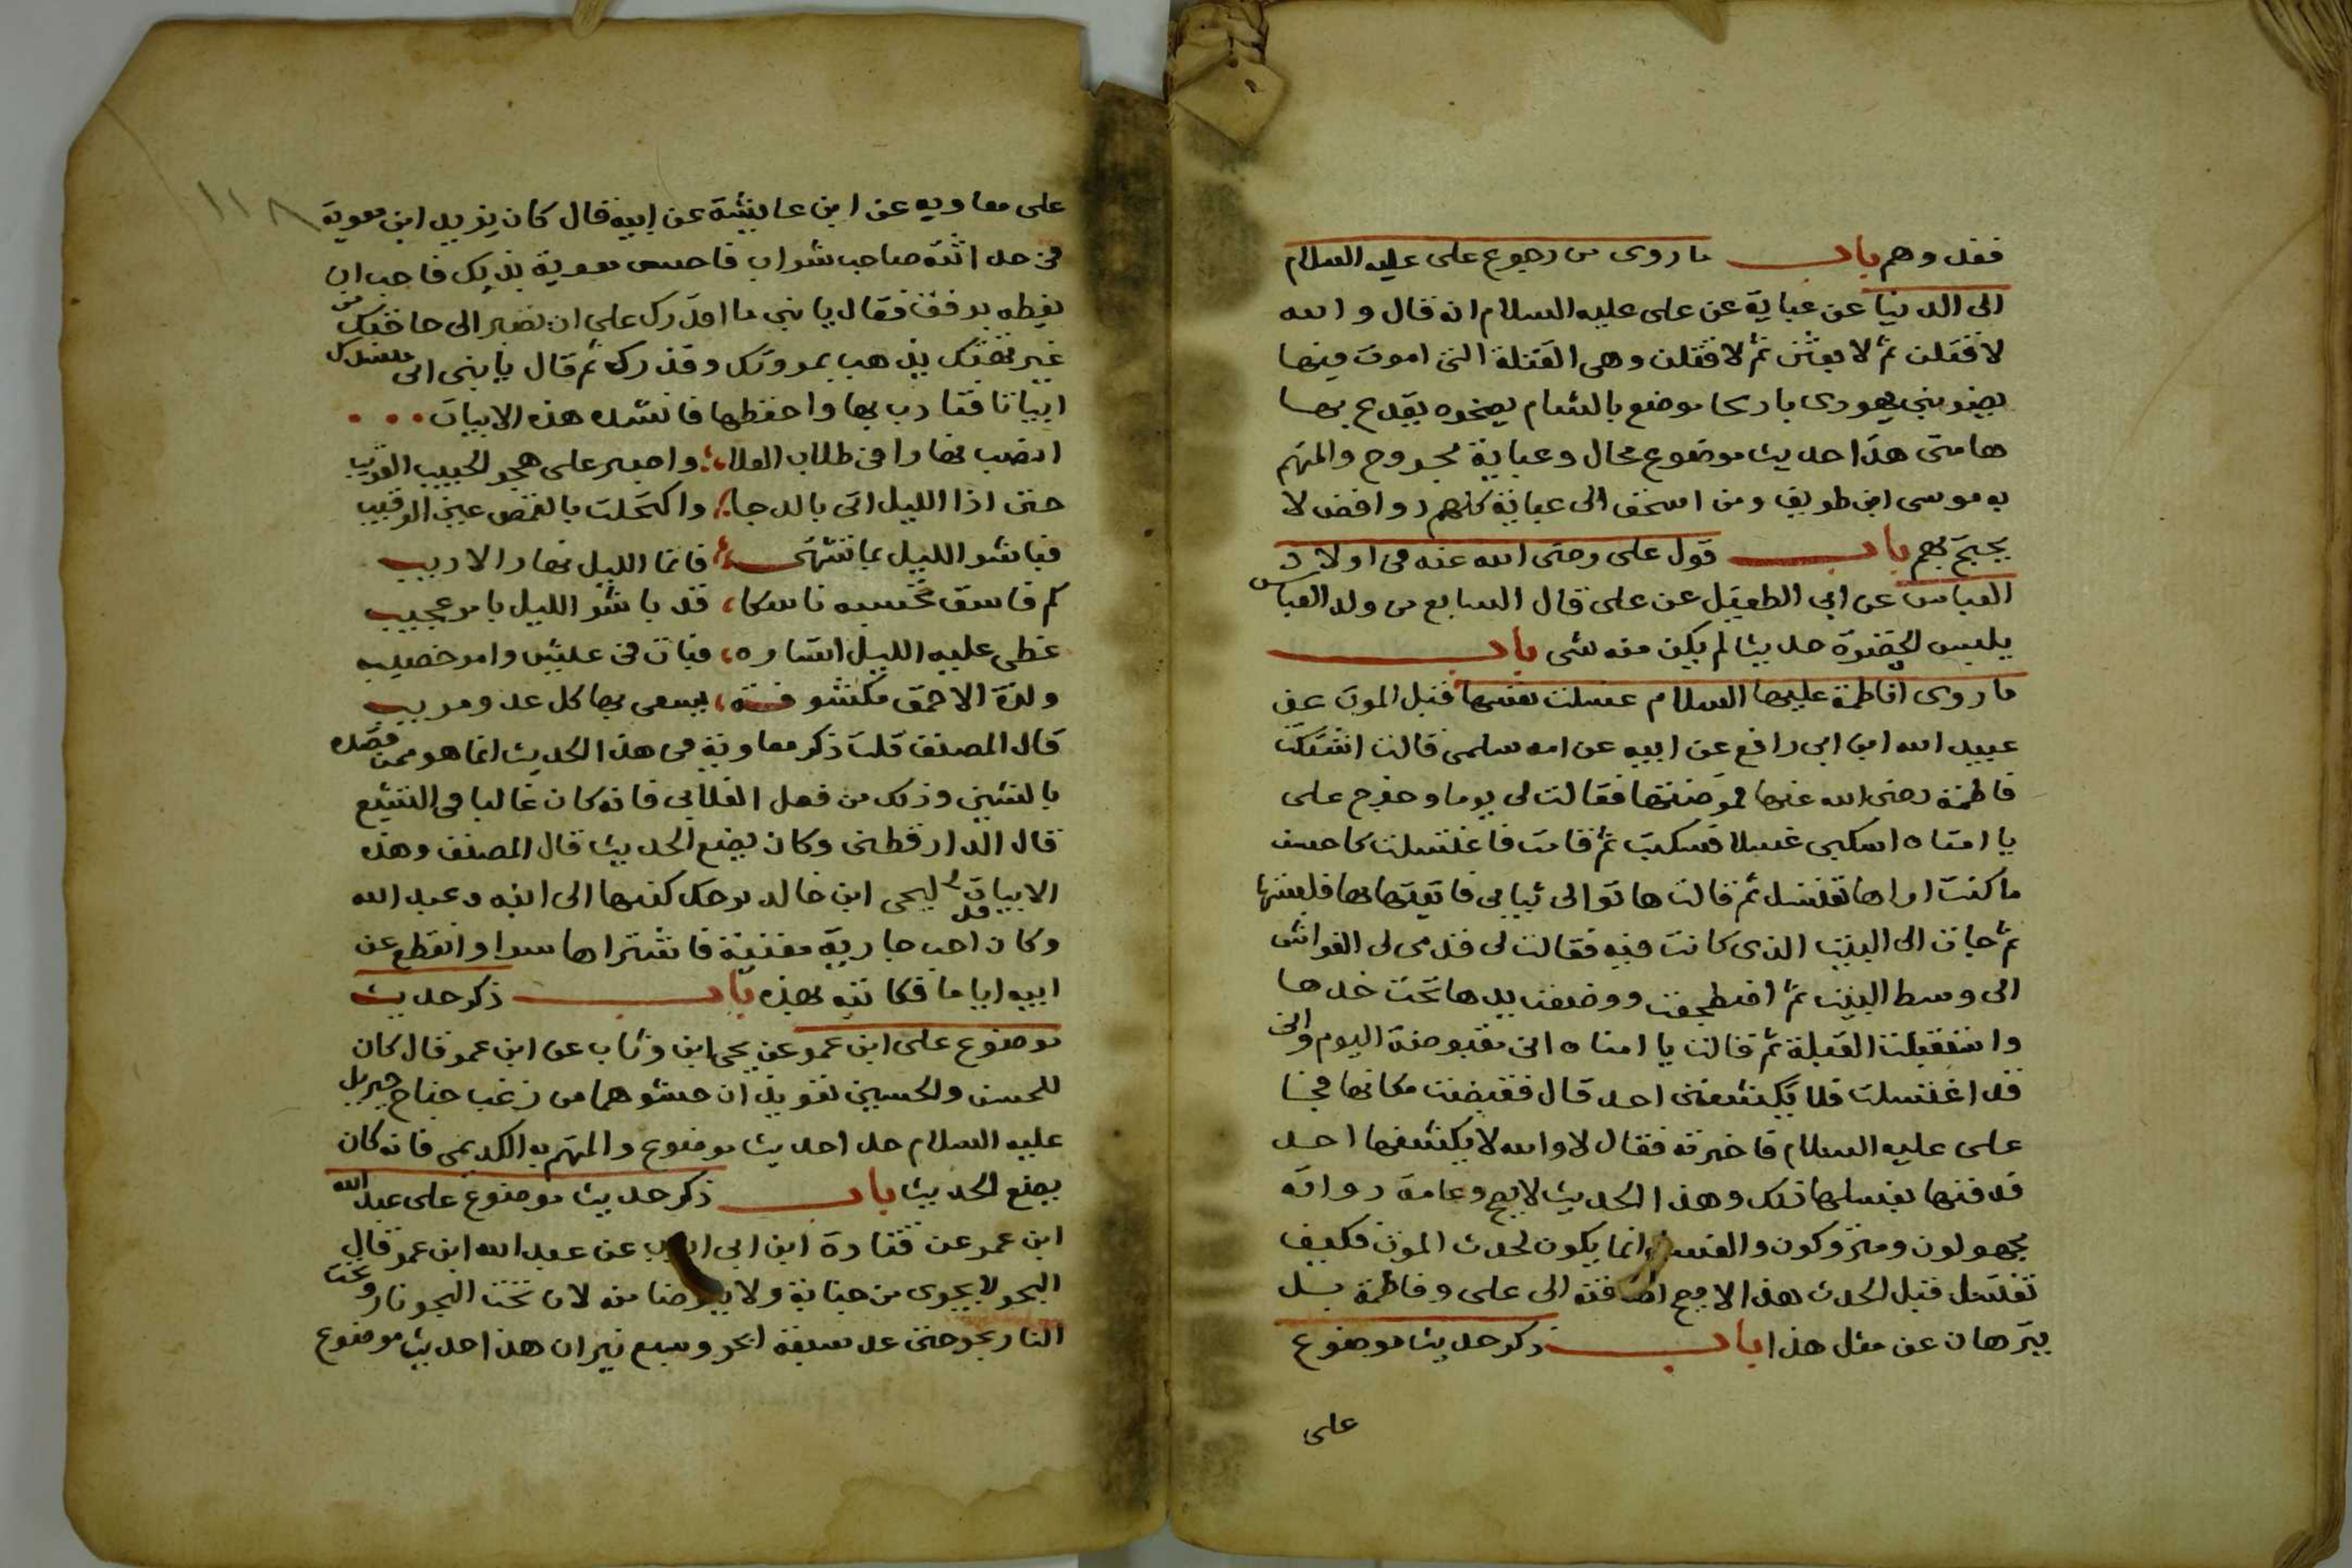 فقد وهم باب ما روى من رجوع على عليه السلام
الى الدنيا عن عباية عن على عليه السلام انه قال والله
لاقتلن ثم لابعثن ثم لاقتلن وهى القتلة التى اموت فيها
يضربنى يهودى باريحا موضع بالشام بصخره يقدع بها
هامتى هذا حديث موضوع محال وعباية مجروح والمتهم
به موسى ابن طريف ومن الى عباية كلهم روافض لا
يحتج بهم باب قول على رضى الله عنه فى اولاد
العباس عن ابى الطفيل عن على قال السابع من ولد العباس
يلبس الخضرة حديث لم يكن منه شى باب
ما روى ا فاطمة عليها السلام غسلت نفسها قبل الموت عن
عبيد الله ابن ابى رافع عن ابيه عن امه سلمى قالت اشتكت
فاطمة رضى الله عنها فمرضتها فقالت لى يوما وخرج على
يا امتاه اسكبى غسلا فسكبت ثم قامت فاغتسلت كاحسن
ما كنت اراها تغتسل ثم قالت هاتوا لى ثيابى فاتيتها بها فلبستها
ثم جات الى البيت الذى كانت فيه فقالت لى قدمى لى الفراش
الى وسط البيت ثم اضطجعت ووضعت يدها تحت خدها
واستقبلت القبلة ثم قالت يا امتاه انى مقبوضة اليوم وانى
قد اغتسلت فلا يكشفنى احد قال فقبضت مكانها فجا
على عليه السلام فاخبرته فقال لا والله لا يكشفها احد
فدفنها بغسلها ذلك وهذا الحديث لا يصح وعامة رواته
مجهولون ومتروكون والغسل انما يكون لحدث الموت فكيف
تغتسل قبل الحدث هذا لا يصح اضافته الى على وفاطمة بل
يترهان عن مثل هذا باب ذكر حديث موضوع
على
١١٨
على معاويه عن ابن عايشة عن ابيه قال كان يزيد ابن معوية
فى حداثته صاحب شراب فاحس معوية بذلك فاحب ان
يعظه برفق فقال يا بنى ما اقدرك على ان تصير الى حاجتك من
غير تهتك يذهب بمروتك وقدرك ثم قال يا بنى انى منشدك
ابياتا فتادب بها واحفظها فانشده هذه الابيات
انصب نهارا فى طلاب العلا واصبر على هجر الحبيب القريب
حتى اذا الليل اتى بالدجا واكتحلت بالغمض عين الرقيب
فباشر الليل بما تشتهى فانما الليل نهار الاريب
كم فاسق تحسبه ناسكا قد باشر الليل بامر عجيب
غطى عليه الليل استاره فبات فى عيش وامر خصيب
ولذة الاحمق مكشوفة يسعى بها كل عدو مريب
قال المصنف قلت ذكر معاوية فى هذا الحديث انما هو ممن قصده
بالشين وذلك من فعل الغلابى فانه كان غاليا فى التشيع
قال الدارقطنى وكان يضع الحديث قال المصنف وهذه
الابيات ليحى ابن خالد برمك كتبها الى ابنه وعبد الله
وكان احب جارية مغنية فاشتراها سرا وانقطع عن
ابيه اياما فكاتبه بهذه باب ذكر حديث
موضوع على ابن عمر عن يحى ابن وثاب عن ابن عمر قال كان
للحسن والحسين تعويذان حشوهما من زغب جناح جبريل
عليه السلام هذا حديث موضوع والمتهم به الكديمى فانه كان
يضع الحديث باب ذكر حديث موضوع على عبد الله
ابن عمر عن قتادة ابن ابى عن عبد الله ابن عمر قال
البحر لا يجزى من جنابة ولا يتوضا منه لان تحت البحر نار وتحت
النار بحر حتى عد سبعة ابحر وسبع نيران هذا حديث موضوع